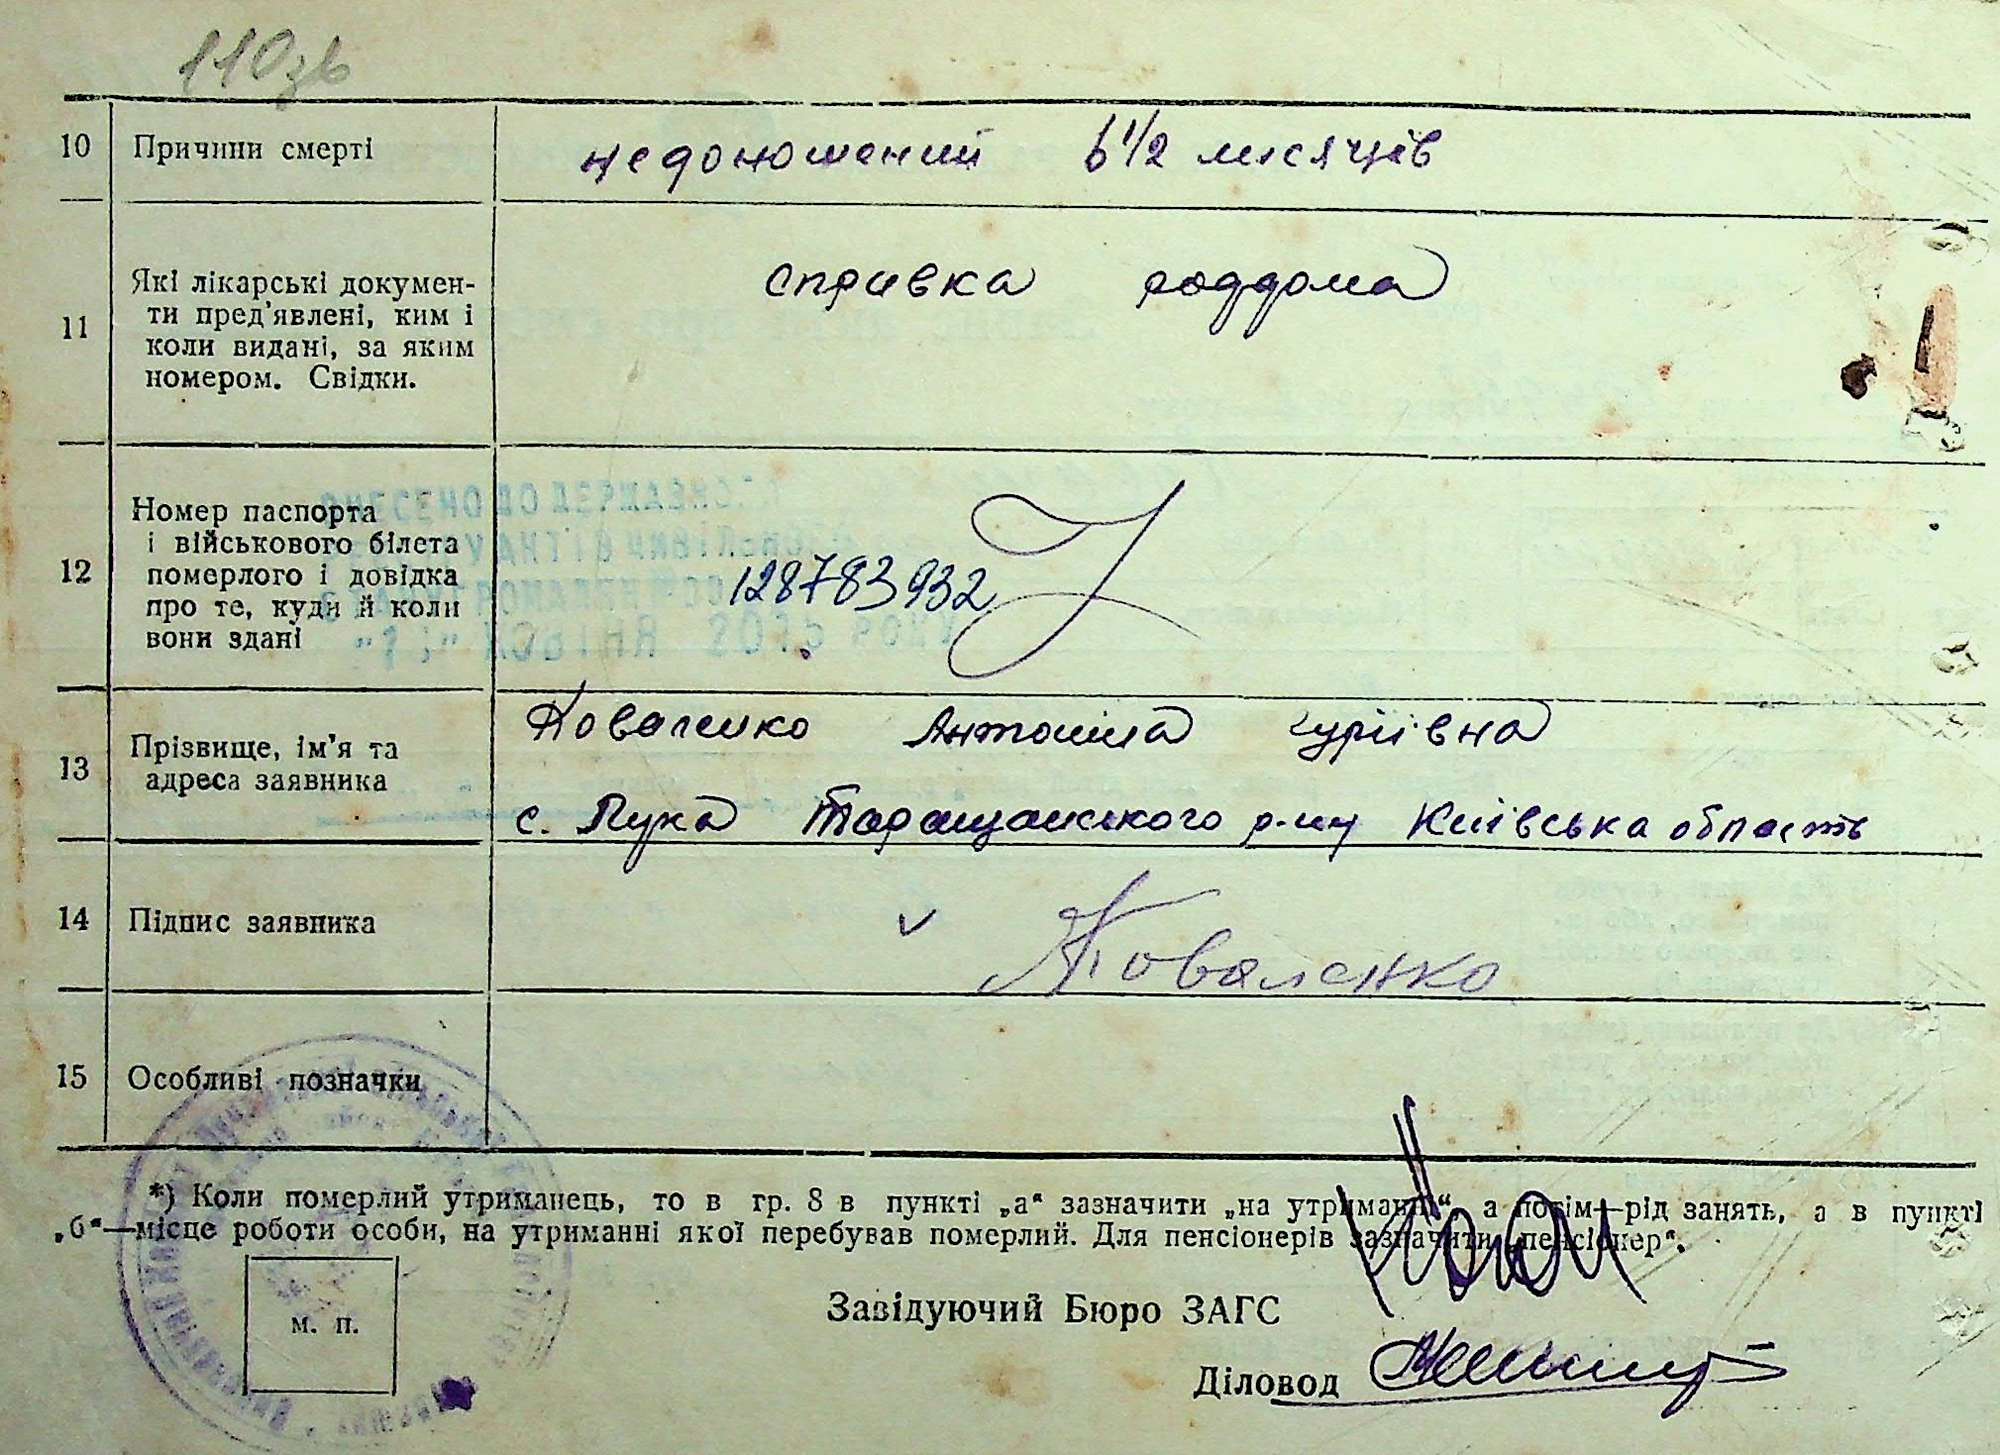 110зв
10 Причини смерті недоношений 6 1/2 місяців
11 Які лікарські докумен-
ти пред'явлені, ким і
коли видані, за яким
номером. Свідки.
справка роддома
12 Номер паспорта
і військового білета
померлого і довідка
про те, куди й коли
вони здані
128783932
ВНЕСЕНО ДО ДЕРЖАВНОГО
АКТІВ ЦИВІЛЬНОГО
СТАНУ ГРОМАДЯН
ЖОВТНЯ 2015 РОКУ
13 Прізвище, ім'я та
адреса заявника
Коваленко Антоніна Гуріївна
с. Лука Таращанського р-ну Київська область
14 Підпис заявника Коваленко
15 Особливі позначки
*) Коли померлий утриманець, то в гр. 8 в пункті „а“ зазначити „на утриманні“, а потім—рід занять, а в пункті
„б“—місце роботи особи, на утриманні якої перебував померлий. Для пенсіонерів зазначити „пенсіонер“.
м. п.
Завідуючий Бюро ЗАГС
Діловод